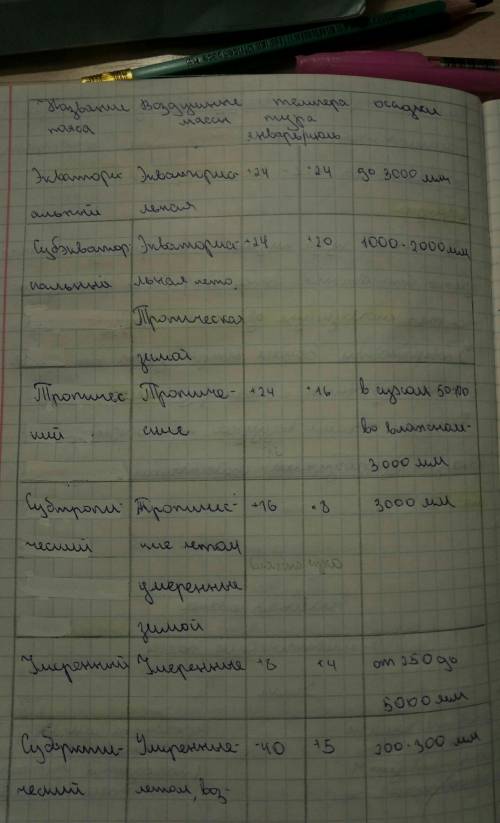 Название Воздушные темпера осадки
пояса массы тура
январь июль
Экватори Экваториа +24 +24 до 3000 мм
альный льная
Субэкватор Экваториа- +24 +20 1000-2000мм
иальный льная лето.
Тропическая
зимой
Тропичес Тропиче- +24 +16 в сухом 50-100
кий ские во влажном-
3000 мм
Субтропи- Тропичес- +16 +8 3000 мм
ческий кие летом
умеренные
зимой
Умеренный Умеренные +8 +4 от 250 до
5000 мм
Субаркти- Умеренные- -40 +5 200-300 мм
ческий летом, воз-